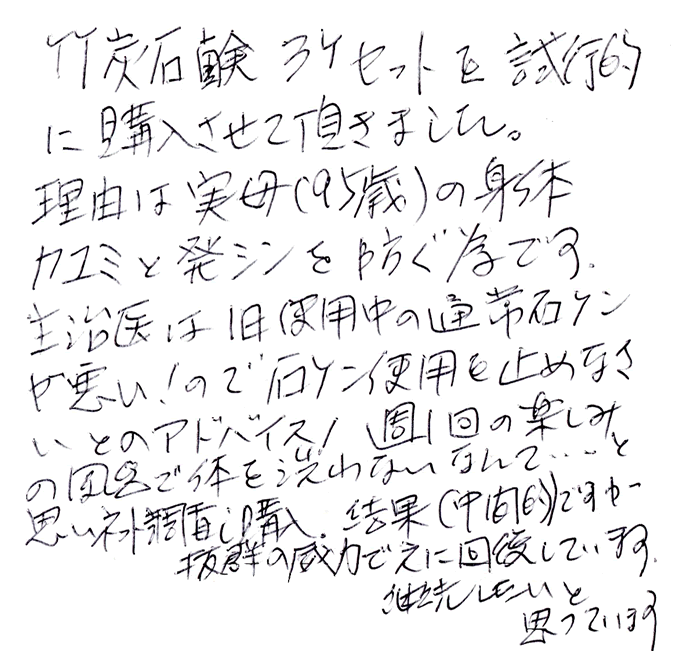 竹炭石鹸 3ケセットを試行的
に購入させて頂きました。
理由は実母(95歳)の身体
カユミと発シンを防ぐ為です.
主治医は旧使用中の通常石ケン
が悪い!ので石ケン使用を止めなさ
いとのアドバイス! 週1回の楽しみ
の風呂で体を洗わないなんて・・・と
思いネット調査し購入. 結果(中間的)ですが
抜群の威力で元に回復しています.
継続したいと
思っています